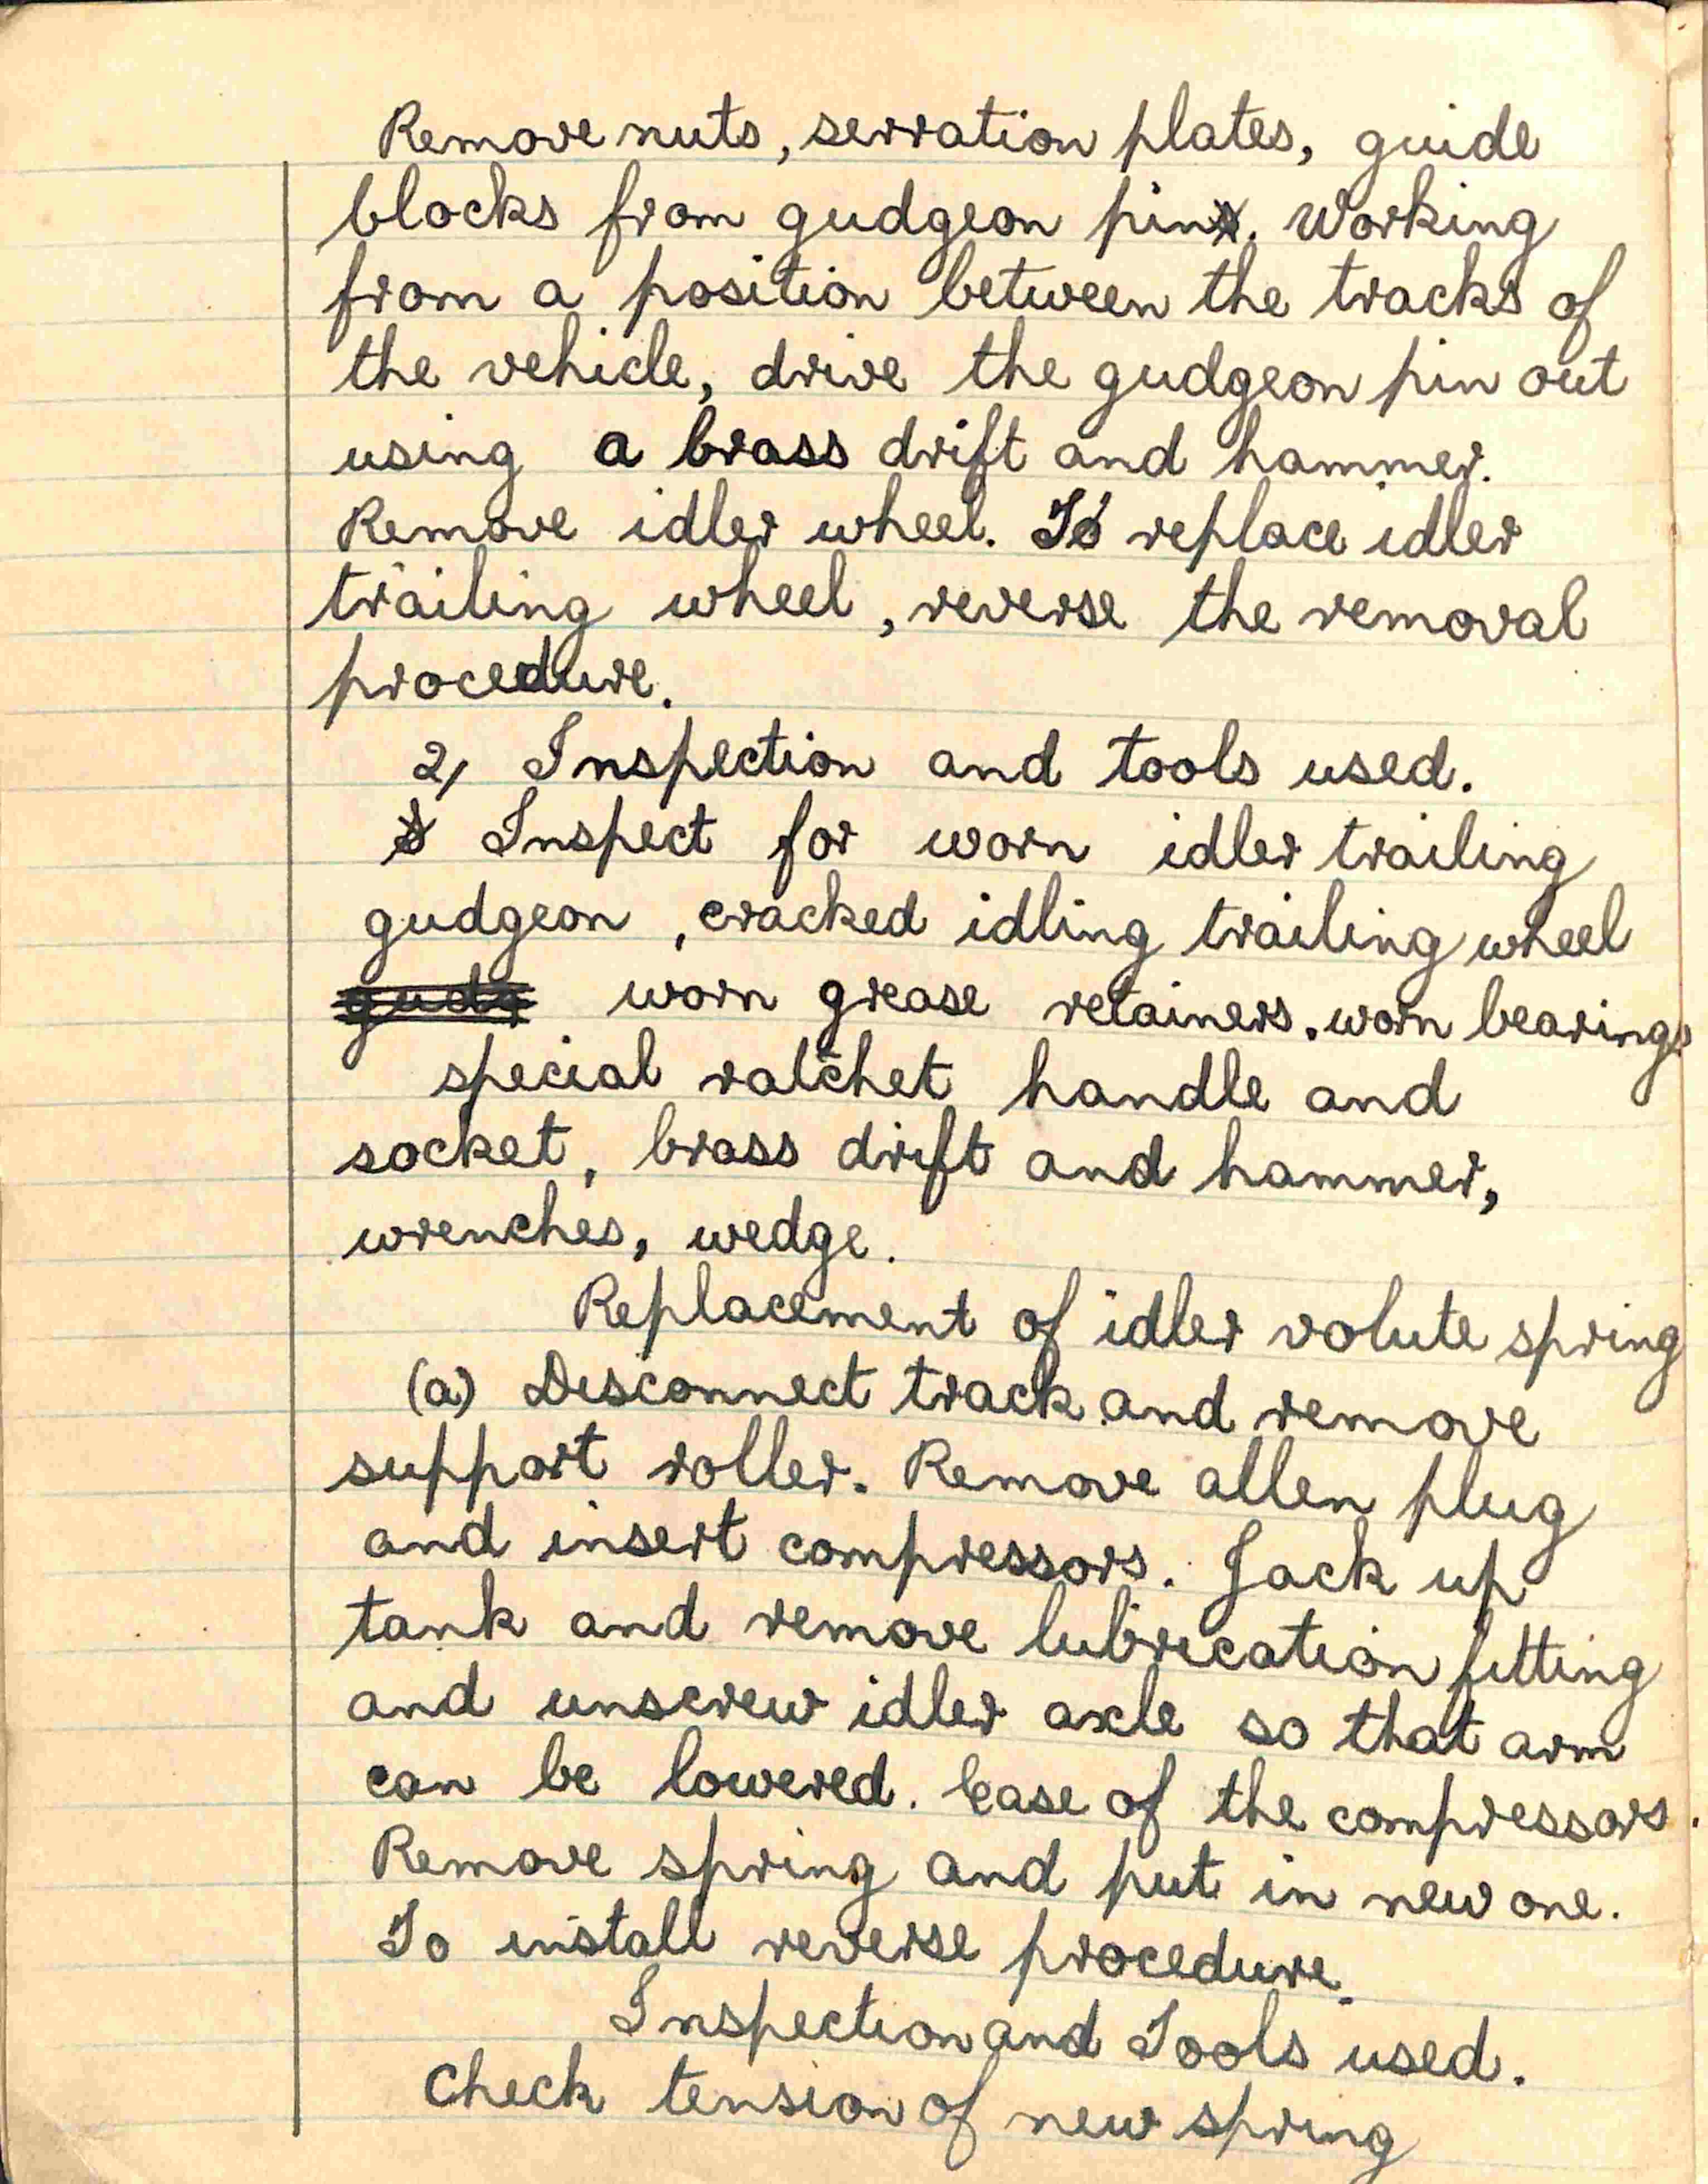 Remove nuts, serration plates, guide
blocks from gudgeon pin. Working
from a position between the tracks of
the vehicle, drive the gudgeon pin out
using a brass drift and hammer.
Remove idler wheel. To replace idler
trailing wheel, reverse the removal
procedure.
2, Inspection and tools used.
Inspect for worn idler trailing
gudgeon, cracked idling trailing wheel
gudg worn grease retainers. worn bearings
special ratchet handle and
socket, brass drift and hammer,
wrenches, wedge.
Replacement of idler volute spring
(a) Disconnect track and remove
support roller. Remove allen plug
and insert compressors. Jack up
tank and remove lubrication fitting
and unscrew idler axle so that arm
can be lowered. Ease of the compressors.
Remove spring and put in new one.
To install reverse procedure.
Inspection and Tools used.
Check tension of new spring